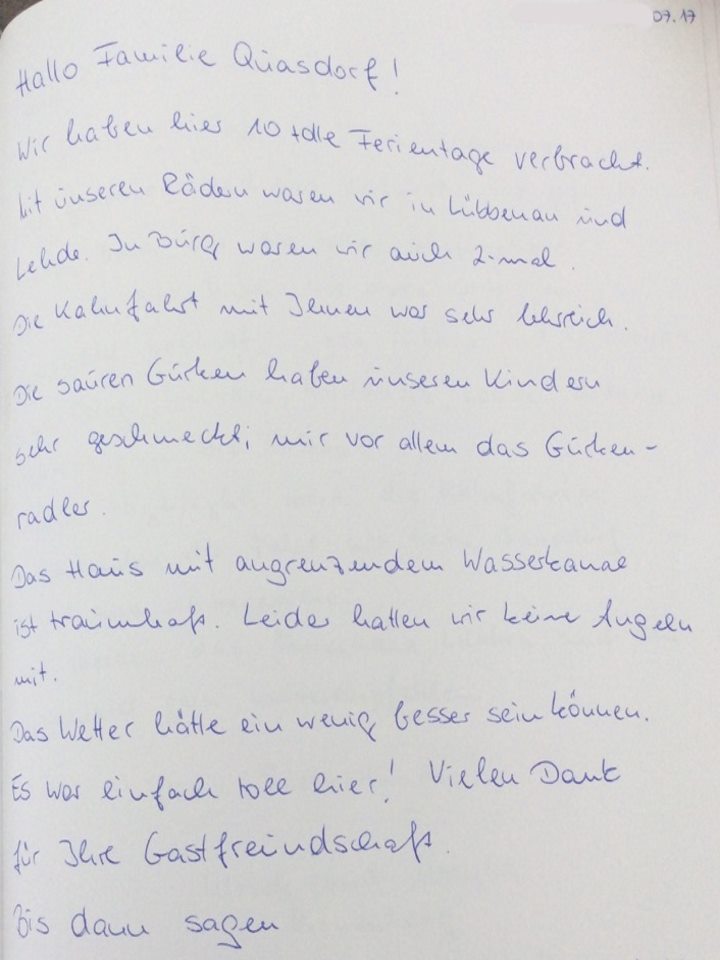 07.17
Hallo Familie Quasdorf!
Wir haben hier 10 tolle Ferientage verbracht.
Mit unseren Rädern waren wir in Lübbenau und
Lehde. In Burg waren wir auch 2-mal.
Die Kahnfahrt mit Ihnen war sehr lehrreich.
Die sauren Gurken haben unseren Kindern
sehr geschmeckt; mir vor allem das Gurken-
radler.
Das Haus mit angrenzendem Wasserkanal
ist traumhaft. Leider hatten wir keine Angeln
mit.
Das Wetter hätte ein wenig besser sein können.
Es war einfach toll hier! Vielen Dank
für Ihre Gastfreundschaft.
Bis dann sagen